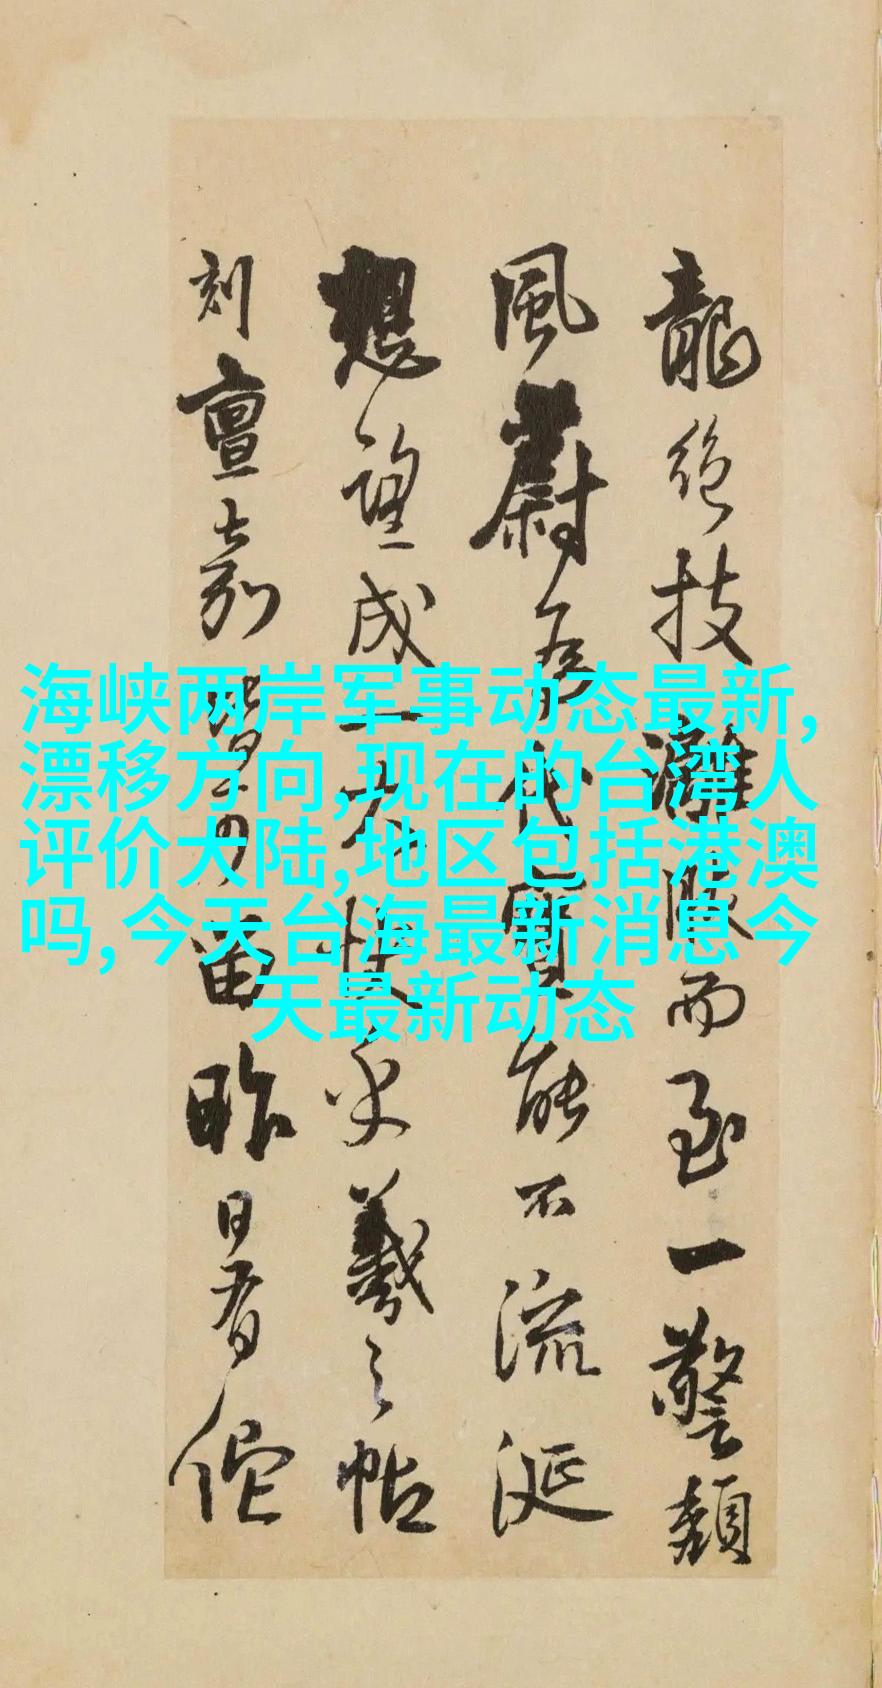 海峡两岸军事动态最新,
漂移方向,现在的台湾人
评价大陆,地区包括港澳
吗,今天台海最新消息今
天最新动态
龍絶技而至一警
風蔚為代寶能不流涎
想望成一大羲之帖
刻留昨日